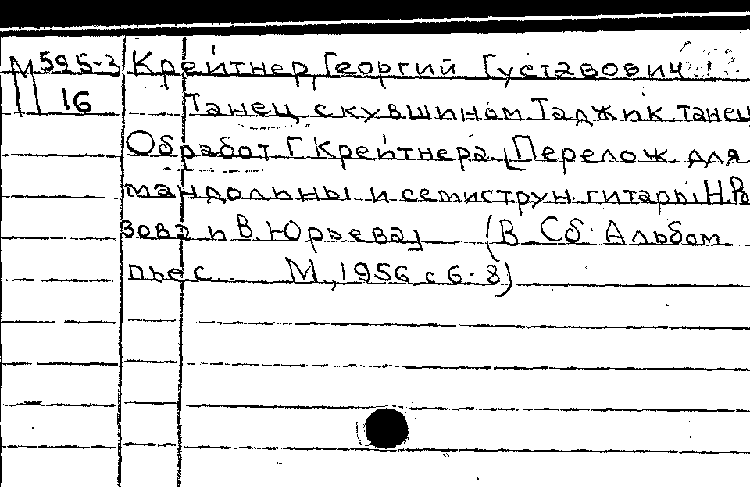 М 595-3 Крейтнер, Георгий Густавович
11 16 Танец с кувшином. Таджик. танец
Обработ. Г. Крейтнера. [Перелож. для
мандолины и семиструн. гитары Н. Ро
зова и В. Юрьева] (В Сб. Альбом
пьес ... М., 1956 с 6-8)